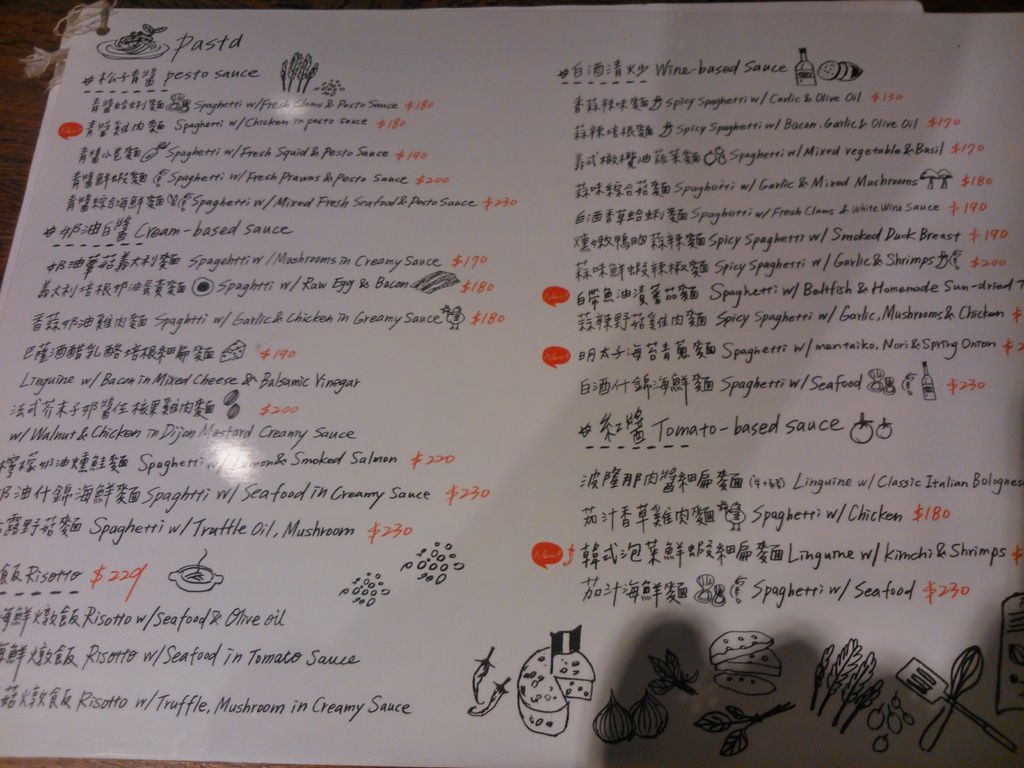 Pasta
#松子青醬 pesto sauce
青醬蛤蜊麵 Spaghetti w/Fresh Clams & Pesto Sauce $180
青醬雞肉麵 Spaghetti w/Chicken in pesto sauce $180
青醬小卷麵 Spaghetti w/Fresh Squid & Pesto Sauce $190
青醬鮮蝦麵 Spaghetti w/Fresh Prawns & Pesto Sauce $200
青醬綜合海鮮麵 Spaghetti w/Mixed Fresh Seafood & Pesto Sauce $230
#奶油白醬 Cream-based sauce
奶油蕈菇義大利麵 Spagehtti w/Mushrooms in Creamy Sauce $170
義大利培根奶油蛋黃麵 Spaghtti w/ Raw Egg & Bacon $180
香蒜奶油雞肉麵 Spaghtti w/ Garlic & Chicken in Greamy Sauce $180
巴薩酒醋乳酪培根細扁麵 $190
Linguine w/ Bacon in Mixed Cheese & Balsamic Vinegar
法式芥末子奶醬佐核果雞肉麵 $200
w/ Walnut & Chicken in Dijon Mostard Creamy Sauce
檸檬奶油燻鮭麵 Spaghetti w/Lemon & Smoked Salmon $220
奶油什錦海鮮麵 Spaghtti w/ Seafood in Creamy Sauce $230
露野菇麵 Spaghetti w/Truffle Oil, Mushroom $230
飯 Risotto $220
海鮮燉飯 Risotto w/Seafood & Olive oil
海鮮燉飯 Risotto w/Seafood in Tomato Sauce
菇燉飯 Risotto w/Truffle, Mushroom in Creamy Sauce
#白酒清炒 Wine-based Sauce
香蒜辣味麵 Spicy Spaghetti w/ Garlic & Olive Oil $130
蒜辣培根麵 Spicy Spaghetti w/ Bacon, Garlic & Olive Oil $170
義式橄欖油蔬菜麵 Spaghetti w/ Mixed vegetable & Basil $170
蒜味綜合菇麵 Spaghetti w/ Garlic & Mixed Mushrooms $180
白酒香草蛤蜊麵 Spaghetti w/ Fresh Clams & White Wine Sauce $190
燻嫩鴨胸蒜辣麵 Spicy Spaghetti w/ Smoked Duck Breast $190
蒜味鮮蝦辣椒麵 Spicy Spaghetti w/ Garlic & Shrimps $200
白帶魚油漬蕃茄麵 Spaghetti w/ Beltfish & Homenade Sun-dried T
蒜辣野菇雞肉麵 Spicy Spaghetti w/ Garlic, Mushrooms & Chicken $
明太子海苔青蔥麵 Spaghetti w/ mentaiko, Nori & Spring Onion $2
白酒什錦海鮮麵 Spaghetti w/Seafood $230
#紅醬 Tomato-based sauce
波隆那肉醬細扁麵 Linguine w/ Classic Italian Bolognese
茄汁香草雞肉麵 Spaghetti w/ Chicken $180
韓式泡菜鮮蝦細扁麵 Linguine w/ kimchi & Shrimps $
茄汁海鮮麵 Spaghetti w/ Seafood $230